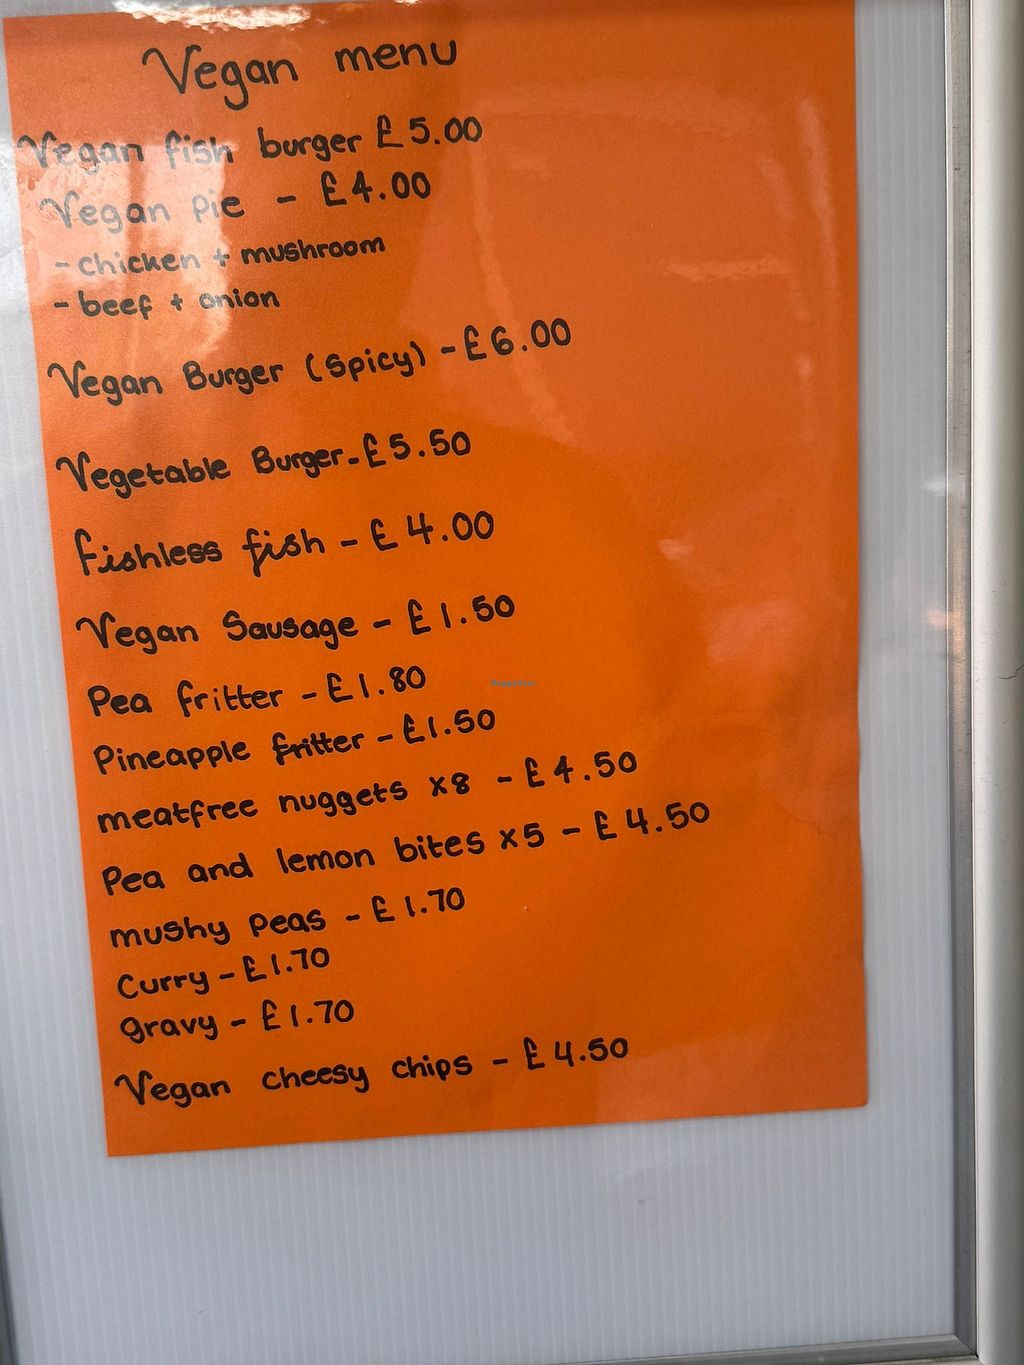 Vegan menu
Vegan fish burger £5.00
Vegan pie - £4.00
- chicken + mushroom
- beef + onion
Vegan Burger (Spicy) - £6.00
Vegetable Burger - £5.50
Fishless fish - £4.00
Vegan Sausage - £1.50
Pea fritter - £1.80
Pineapple fritter - £1.50
meatfree nuggets x8 - £4.50
Pea and lemon bites x5 - £4.50
mushy peas - £1.70
Curry - £1.70
gravy - £1.70
Vegan cheesy chips - £4.50